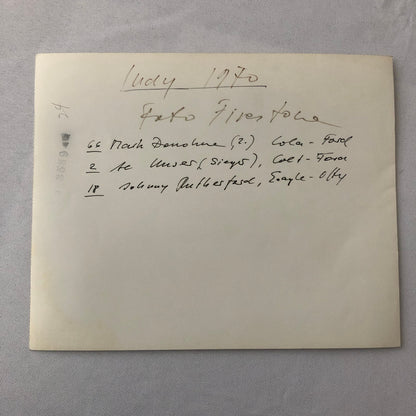 Indy 1970
Foto Firestone
66 Mark Donohue (2.) Lola - Ford
2 Al Unser (Sieger), Colt - Ford
18 Johnny Rutherford, Eagle - Offy